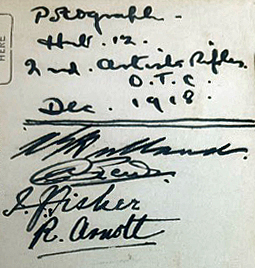 HERE
Photograph.
Hut. 12.
2nd. Artists Rifles.
O.T.C.
Dec. 1918.
J. Fisher
R. Arnott